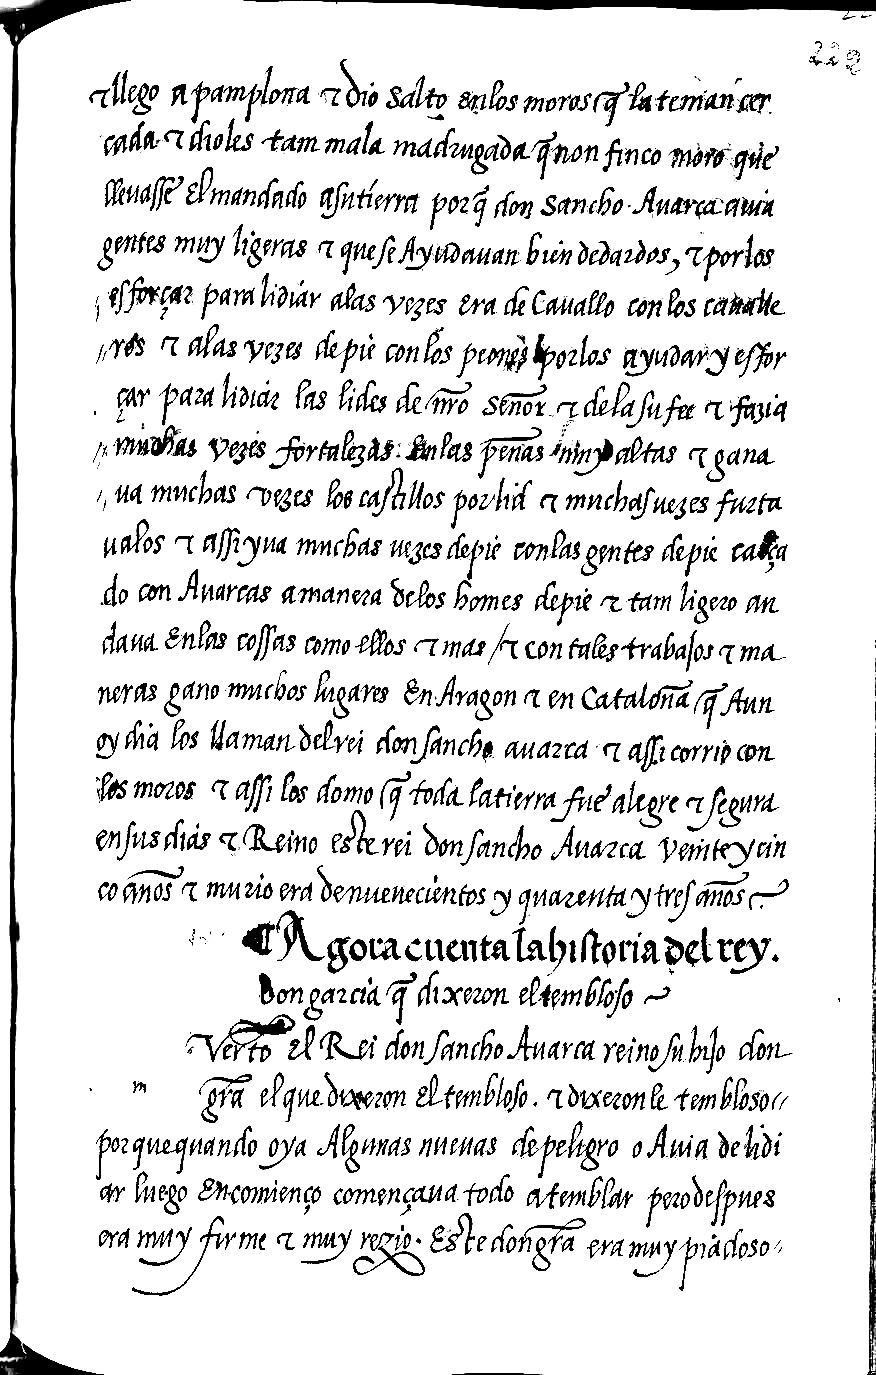 222
⁊ llego a pamplona ⁊ dio salto enlos moros q̃ la tenian cer
cada ⁊ dioles tam mala madrugada q̃ non finco moro que
lleuasse el mandado asu tierra por q̃ don Sancho Auarca auia
gentes muy ligeras ⁊ que se Ayudauan bien de dardos, ⁊ por los
esforçar para lidiar alas vezes era de Cauallo con los caualle
ros ⁊ alas vezes de pie con los peones por los ayudar y esfor
çar para lidiar las lides de nr̃o Señor ⁊ de la su fee ⁊ fazia
muchas vezes fortalezas. Enlas peñas muy altas ⁊ gana
ua muchas vezes los castillos por lid ⁊ muchas uezes furta
ualos ⁊ assi yua muchas uezes de pie con las gentes de pie calça
do con Auarcas a manera de los homes de pie ⁊ tam ligero an
daua Enlas cossas como ellos ⁊ mas / ⁊ con tales trabajos ⁊ ma
neras gano muchos lugares En Aragon ⁊ en Cataloña q̃ Aun
oy dia los llaman del rei don sancho auarca ⁊ assi corrio con
los moros ⁊ assi los domo q̃ toda la tierra fue alegre ⁊ segura
en sus dias ⁊ Reino este rei don sancho Auarca veinte y cin
co años ⁊ murio era de nuenecientos y quarenta y tres años
¶ Agora cuenta la historia del rey.
Don garcia q̃ dixeron el tembloso
Verto el Rei don sancho Auarca reino su hijo don
m gr̃a el que dixeron El tembloso. ⁊ dixeronle tembloso
por que quando oya Algunas nueuas de peligro o Auia de lidi
ar luego Encomienço començaua todo a temblar pero despues
era muy firme ⁊ muy rezio. Este don gr̃a era muy piadoso